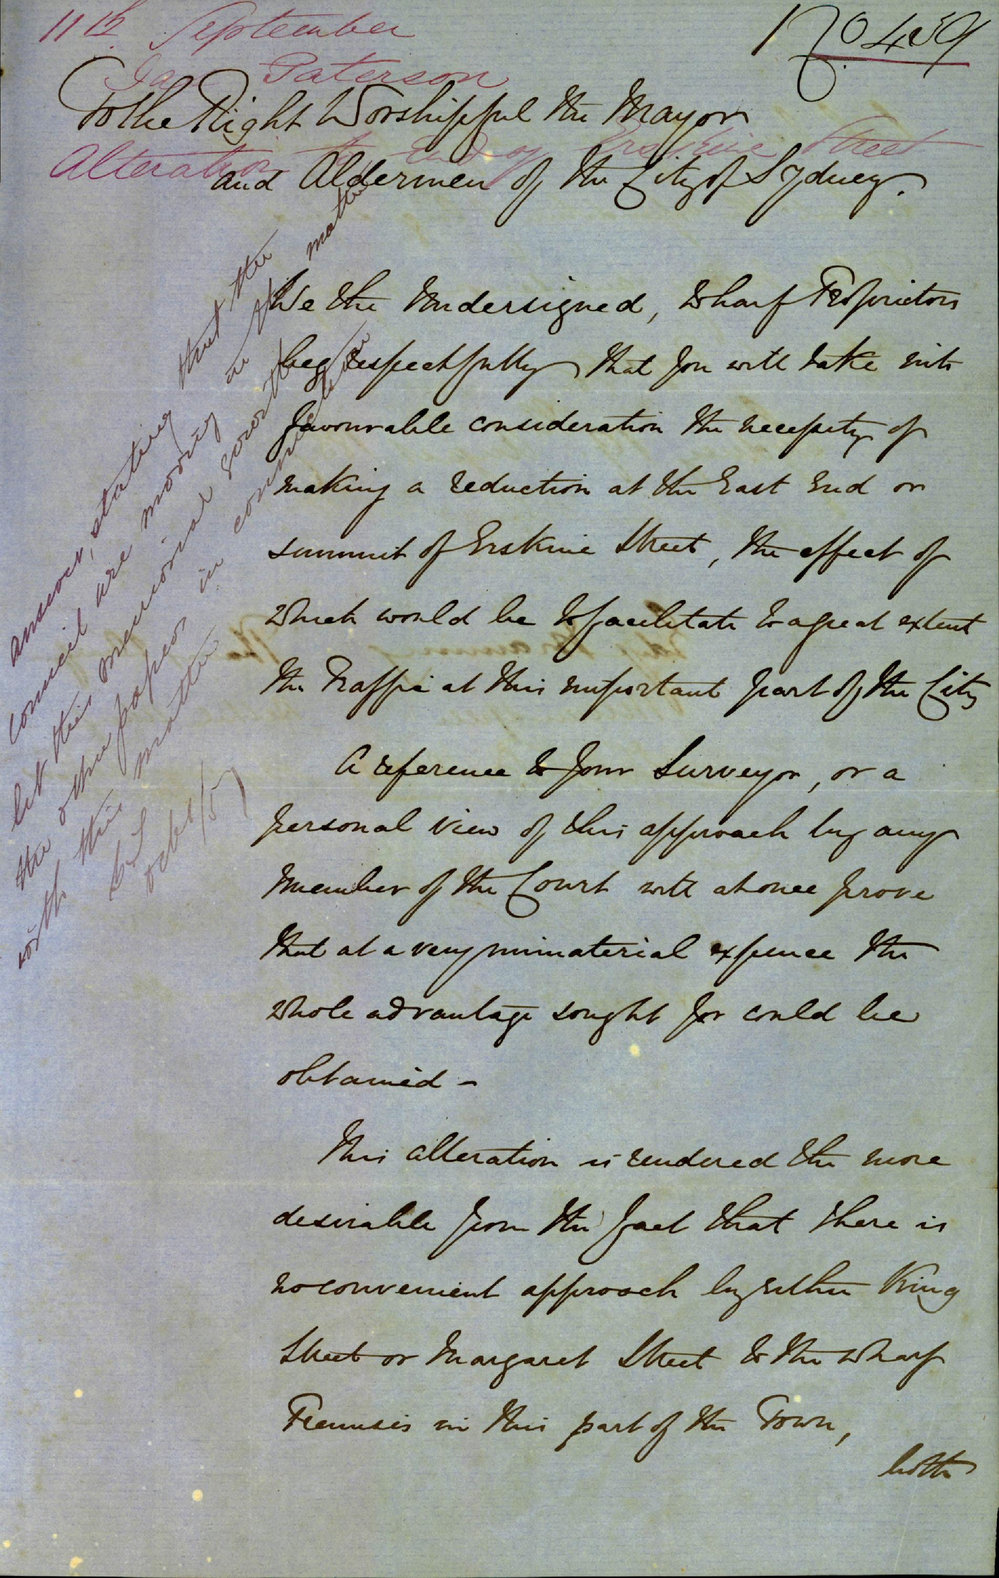 11th September
No 459
Jas Paterson
To the Right Worshipful the Mayor
Alteration to End of Erskine Street
and Aldermen of the City of Sydney.
We the Undersigned, Wharf Proprietors
beg respectfully that you will take into
favourable consideration the necessity of
making a reduction at the East End or
summit of Erskine Street, the effect of
which would be to facilitate to a great extent
the Traffic at this important part of the City
A reference to your Surveyor, or a
personal view of this approach by any
Member of the Court will at once prove
that at a very immaterial expence the
whole advantage sought for could be
obtained -
This alteration is rendered the more
desirable from the fact that there is
no convenient approach by either King
Street or Margaret Street to the wharf
Premises in this part of the Town,
both
answer, stating that the
Council are moving in the matter
let this memorial go with
the other papers
with this matter
Oct 6/57